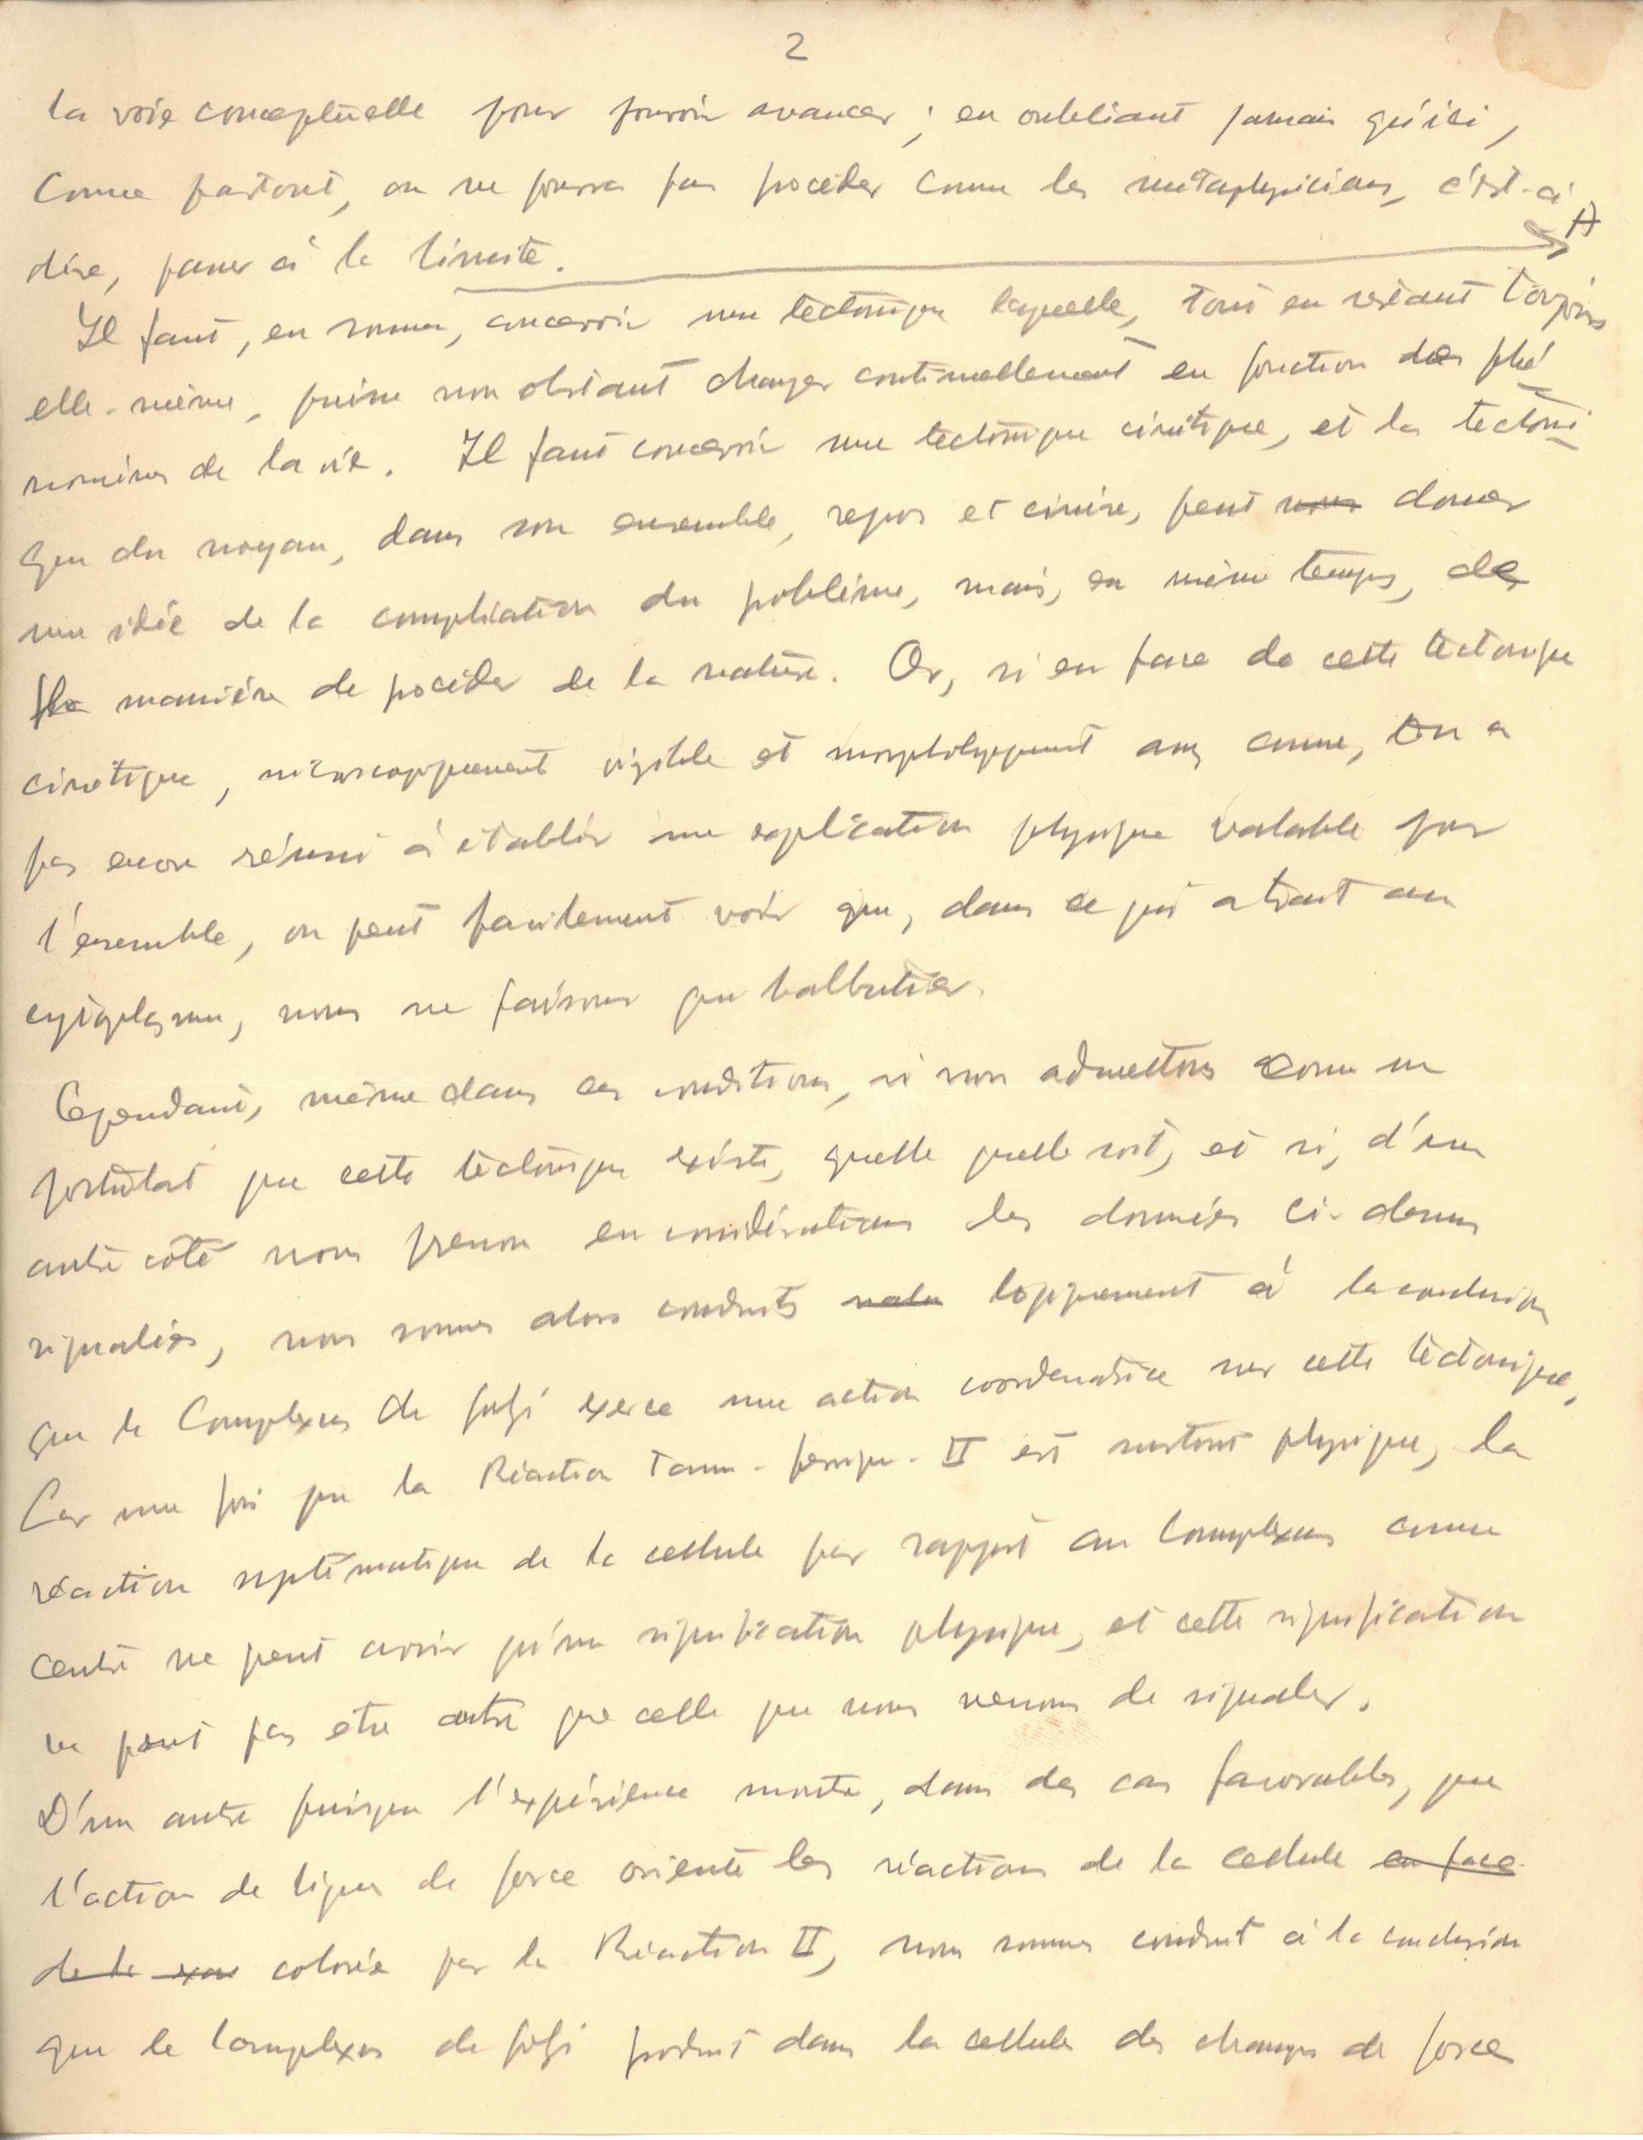 2
la voie conceptuelle pour pouvoir avancer ; en oubliant jamais qu'ici,
Comme partout, on ne pourra pas proceder comme les métaphysiciens, c'est-à
dire, passer à la limite. A
Il faut, en somme, concevoir une tectonique laquelle, tout en restant toujours
elle-même, puisse non obstant changer continuellement en fonction des phé
nomènes de la vie. Il faut concevoir une tectonique cinétique, et la tectoni
que du noyau, dans son ensemble, repos et cinèse, peut nous donner
une idée de la complication du problème, mais, en même temps, de
la manière de procéder de la nature. Or, si en face de cette tectonique
cinétique, microscopiquement visible et morphologiquement assez connue, on a
pas encore réussi à établir une explication physique valable pour
l'ensemble, on peut facilement voir que, dans ce qui a trait au
cytoplasme, nous ne faisons que balbutier.
Cependant, même dans ces conditions, si nous admettons comme un
postulat que cette tectonique existe, quelle quelle soit, et si, d'un
autre côté nous prenons en considérations les données ci-dessus
signalées, nous sommes alors conduits logiquement à la conclusion
que le Complexus de Golgi exerce une action coordenatrice sur cette tectonique,
Car une fois que la Réaction Tann-ferrique-II est surtout physique, la
réaction systématique de la cellule par rapport au Complexus comme
centre ne peut avoir qu'une signification physique, et cette signification
ne peut pas etre autre que celle que nous venons de signaler.
D'un autre puisque l'expérience montre, dans des cas favorables, que
l'action de lignes de force oriente les réactions de la cellule en face
de la colorée par la Réaction II, nous sommes conduit à la conclusion
que le Complexus de Golgi produit dans la cellule des champs de force